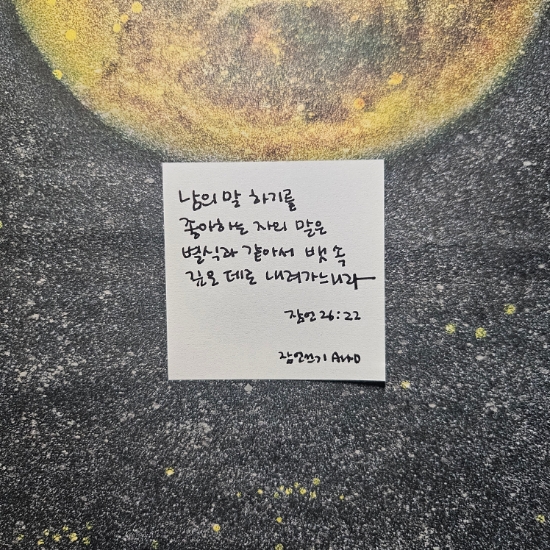 남의 말 하기를
좋아하는 자의 말은
별식과 같아서 뱃 속
깊은 데로 내려가느니라
잠언 26:22
잠언쓰기